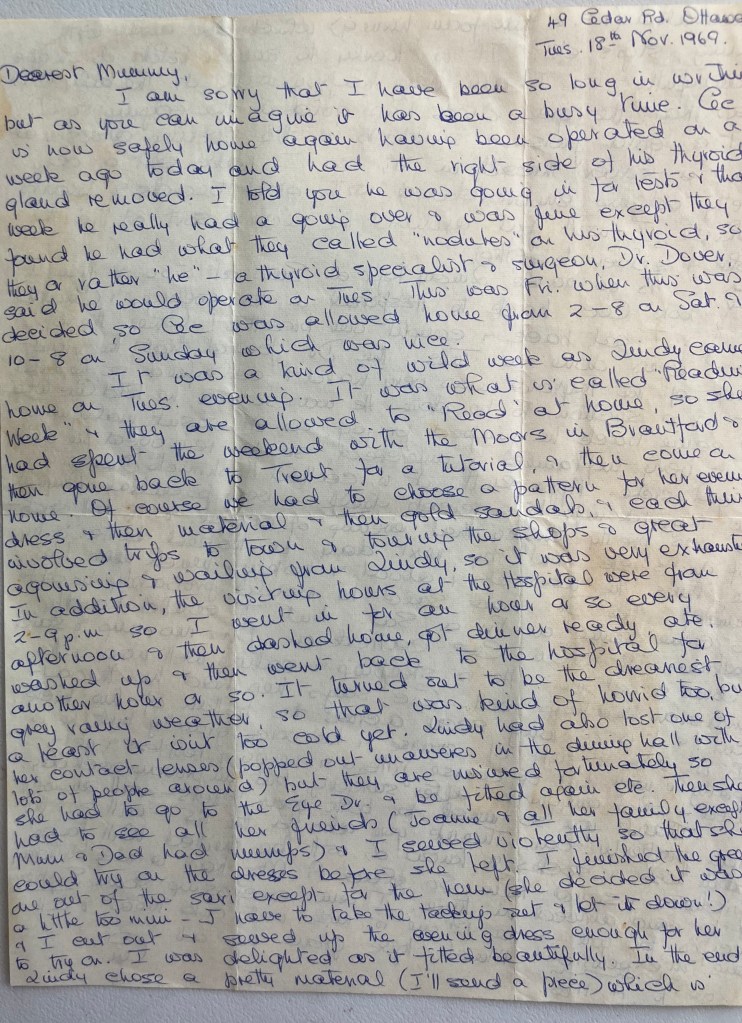 49 Cedar Rd. Ottawa
Tues. 18th Nov. 1969.
Dearest Mummy,
I am sorry that I have been so long in writing
but as you can imagine it has been a busy time. Cec
is now safely home again having been operated on a
week ago today and had the right side of his thyroid
gland removed. I told you he was going in for tests & that
week he really had a going over & was fine except they
found he had what they called "nodules" on his thyroid, so
they or rather "he" - a thyroid specialist & surgeon, Dr. Dover,
said he would operate on Tues. This was Fri. when this was
decided, so Cec was allowed home from 2-8 on Sat. &
10-8 on Sunday which was nice.
It was a kind of wild week as Lindy came
home on Tues. evening. It was what is called "Reading
Week" & they are allowed to "Read" at home, so she
had spent the weekend with the Moors in Brantford &
then gone back to Trent for a tutorial, & then come on
home. Of course we had to choose a pattern for her evening
dress & then material & then gold sandals, & each thing
involved trips to town & touring the shops & great
agonising & wailing from Lindy, so it was very exhausting
In addition, the visiting hours at the Hospital were from
2-9 p.m so I went in for an hour or so every
afternoon & then dashed home, got dinner ready ate,
washed up & then went back to the hospital for
another hour or so. It turned out to be the dreariest
grey rainy weather, so that was kind of horrid too, but
at least it isn't too cold yet. Lindy had also lost one of
her contact lenses (popped out unawares in the dining hall with
lots of people around) but they are insured fortunately so
she had to go to the Eye Dr. & be fitted again etc. Then she
had to see all her friends (Joanne & all her family except
Mum & Dad had mumps) & I sewed violently so that she
could try on the dresses before she left. I finished the green
one out of the sari except for the hem (she decided it was
a little too mini - I have to take the tacking out & let it down!)
& I cut out & sewed up the evening dress enough for her
to try on. I was delighted as it fitted beautifully. In the end
Lindy chose a pretty material (I'll send a piece) which is